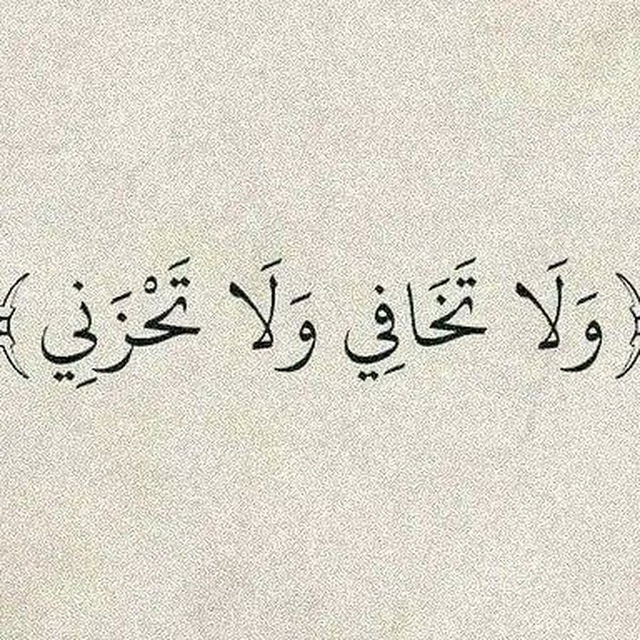 ﴿وَلَا تَخَافِي وَلَا تَحْزَنِي﴾